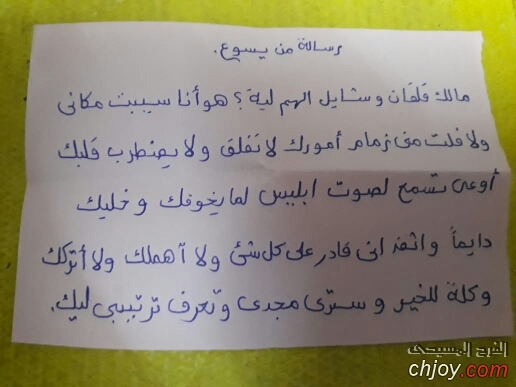 رسالة من يسوع.
مالك قلقان وشايل الهم لية ؟ هو أنا سيبت مكانى
ولا فلت منى زمام أمورك لا تقلق ولا يضطرب قلبك
أوعى تسمع لصوت ابليس لما يخوفك وخليك
دايماً واثقة انى قادر على كل شئ ولا أهملك ولا أتركك
وكلة للخير وسترى مجدى وتعرف ترتيبى ليك.
الفرح المسيحى
chjoy.com